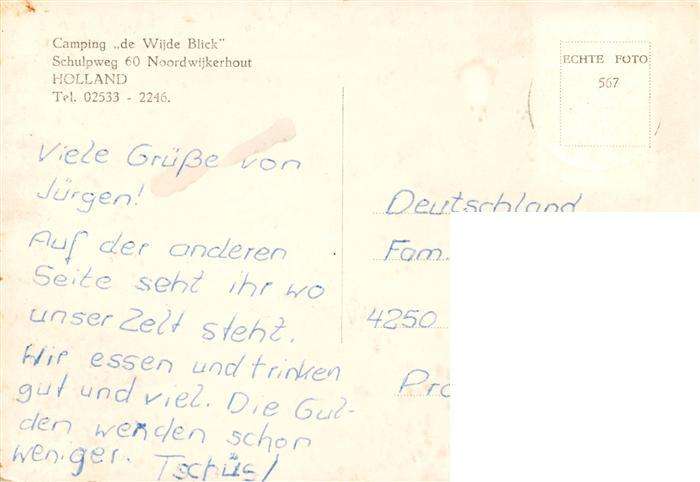 Camping „de Wijde Blick"
Schulpweg 60 Noordwijkerhout
HOLLAND
Tel. 02533 - 2246.
ECHTE FOTO
567
Viele Grüße von
Jürgen!
Auf der anderen
Seite seht ihr wo
unser Zelt steht.
Wir essen und trinken
gut und viel. Die Gul-
den wenden schon
weniger. Tschüs!
Deutschland
Fam.
4250